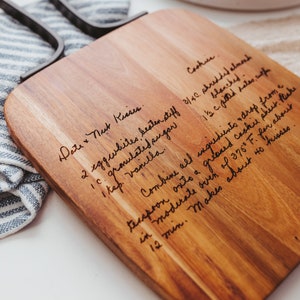 Date & Nut Kisses
Cookies
2 egg whites beaten stiff
1 c granulated sugar
1 tsp vanilla
3/4 c shredded almond
blanched
1 c pitted dates cup
Combine all ingredients, drop from a
teaspoon onto a greased cookie sheet. Bake
in moderate oven of 375° F. for about
12 min. Makes about 40 kisses